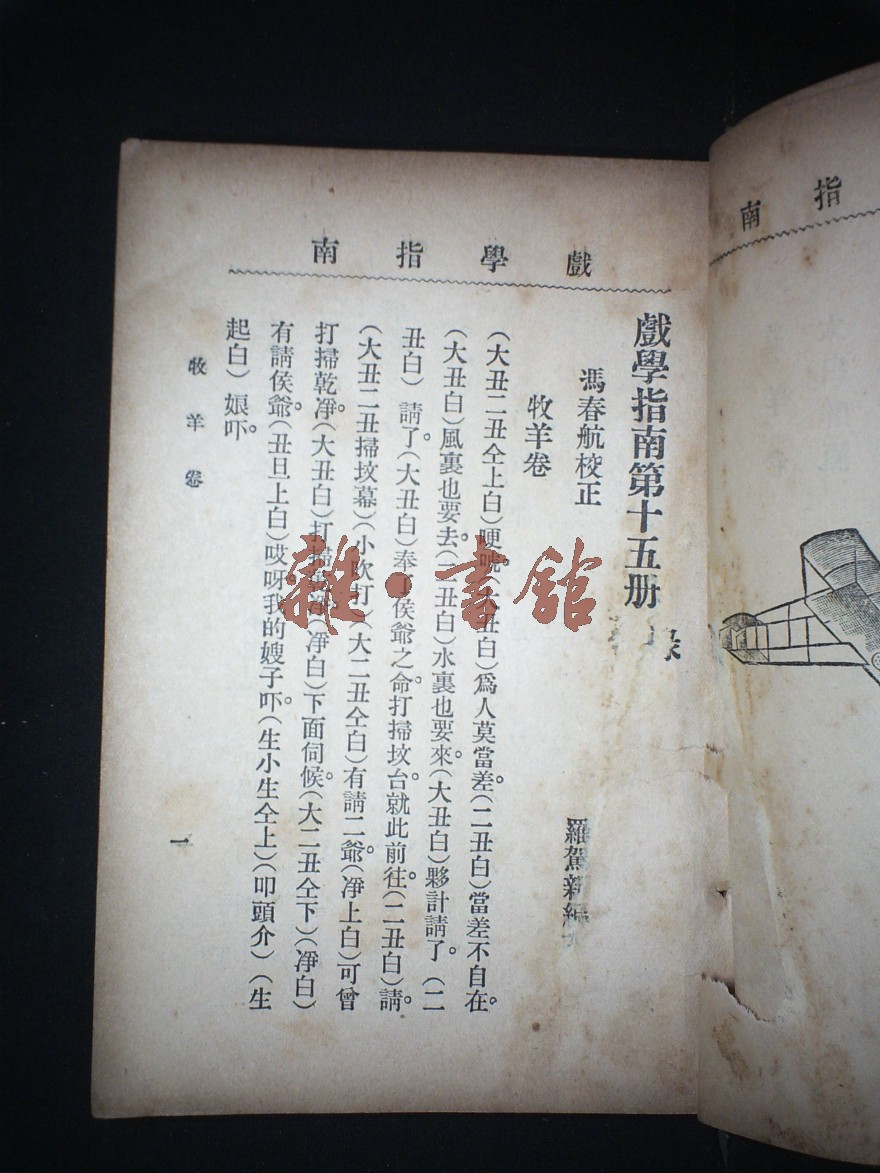 指南
戲學指南
戲學指南第十五册
馮春航校正
羅駕新編
牧羊卷
(大丑二丑仝上白)哽吭。(大丑白)爲人莫當差。(二丑白)當差不自在。
(大丑白)風裏也要去。(二丑白)水裏也要來。(大丑白)夥計請了。(二
丑白)請了。(大丑白)奉了侯爺之命。打掃坟台。就此前往。(二丑白)請。
(大丑二丑掃坟幕)(小吹打)(大二丑仝白)有請二爺。(凈上白)可曾
打掃乾凈。(大丑白)打掃乾凈。(凈白)下面伺候。(大二丑仝下)(凈白)
有請侯爺。(丑旦上白)哎呀我的嫂子吓。(生小生仝上)(叩頭介)(生
起白)娘吓。
牧羊卷
一
雜·書館